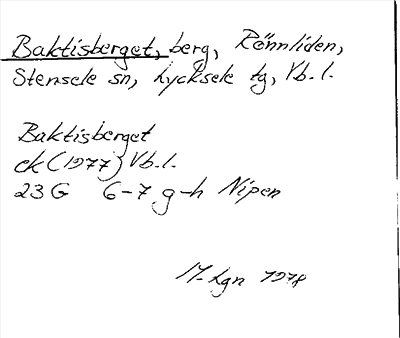 Baktisberget, berg, Rönnliden,
Stensele sn, Lycksele tg, Vb. l.
Baktisberget
ek (1977) Vb. l.
23 G 6-7 g-h Nipen
1978